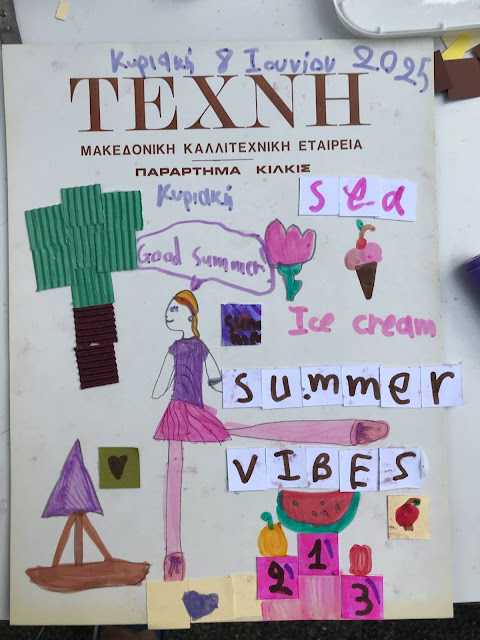 Κυριακή 8 Ιουνίου 2025
ΤΕΧΝΗ
ΜΑΚΕΔΟΝΙΚΗ ΚΑΛΛΙΤΕΧΝΙΚΗ ΕΤΑΙΡΕΙΑ
ΠΑΡΑΡΤΗΜΑ ΚΙΛΚΙΣ
Κυριακή
sea
Good summer
Ice cream
summer
VIBES
1
2
3